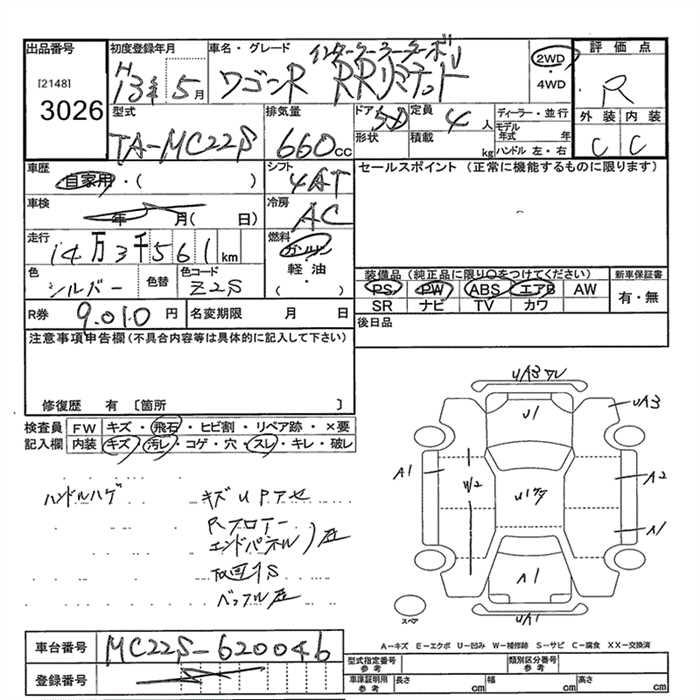 出品番号
[2148]
3026
初度登録年月
H 13年 5月
車名・グレード
インタークーラーターボ
ワゴンR RRリミテッド
2WD
・
4WD
評価点
R
外装 内装
C C
型式
TA-MC22S
排気量
660cc
ドア 5D
形状
定員 4人
積載 kg
ディーラー・並行
モデル
年式 年
ハンドル 左・右
車歴
自家用・( )
シフト
4AT
セールスポイント (正常に機能するものに限ります)
車検
年 月( 日)
冷房
AC
走行
14万3千561km
燃料
ガソリン
・
軽油
・
( )
色
シルバー
色替
色コード
Z2S
装備品 (純正品に限り○をつけてください)
PS PW ABS エアB AW
SR ナビ TV カワ
新車保証書
有・無
R券 9,010円
名変期限 月 日
後日品
注意事項申告欄 (不具合内容等は具体的に記入して下さい)
修復歴 有 〔箇所 〕
検査員
記入欄
FW キズ・飛石・ヒビ割・リペア跡・×要
内装 キズ・汚レ・コゲ・穴・スレ・キレ・破レ
ハンドルハゲ
キズUPアセ
Rフロアー
エンドパネル
バックフル歪
UA3
U1
UA3
A1
W2
A2
A1
A1
UA1
スペア
A-キズ E-エクボ U-凹み W-補修跡 S-サビ C-腐食 XX-交換済
車台番号 MC22S-620046
登録番号
型式指定番号
参考
類別区分番号
参考
車庫証明用
参考
長さ cm 幅 cm 高さ cm